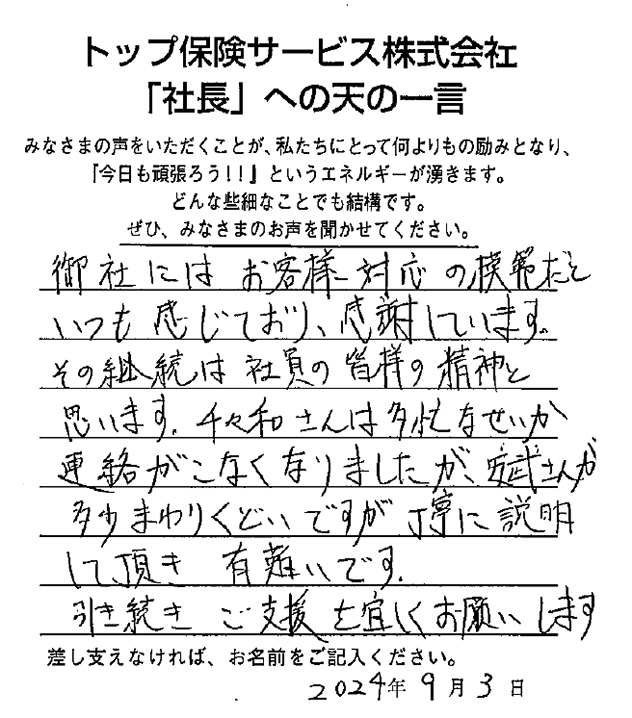 トップ保険サービス株式会社
「社長」への天の一言
みなさまの声をいただくことが、私たちにとって何よりもの励みとなり、
『今日も頑張ろう！！』というエネルギーが湧きます。
どんな些細なことでも結構です。
ぜひ、みなさまのお声を聞かせてください。
御社にはお客様対応の模範だと
いつも感じており、感謝しています。
その継続は社員の皆様の精神と
思います。千々和さんは多忙なせいか
連絡がこなくなりましたが、安武さんが
多少まわりくどいですが丁寧に説明
して頂き有難いです。
引き続きご支援を宜しくお願いします
差し支えなければ、お名前をご記入ください。
2024年9月3日